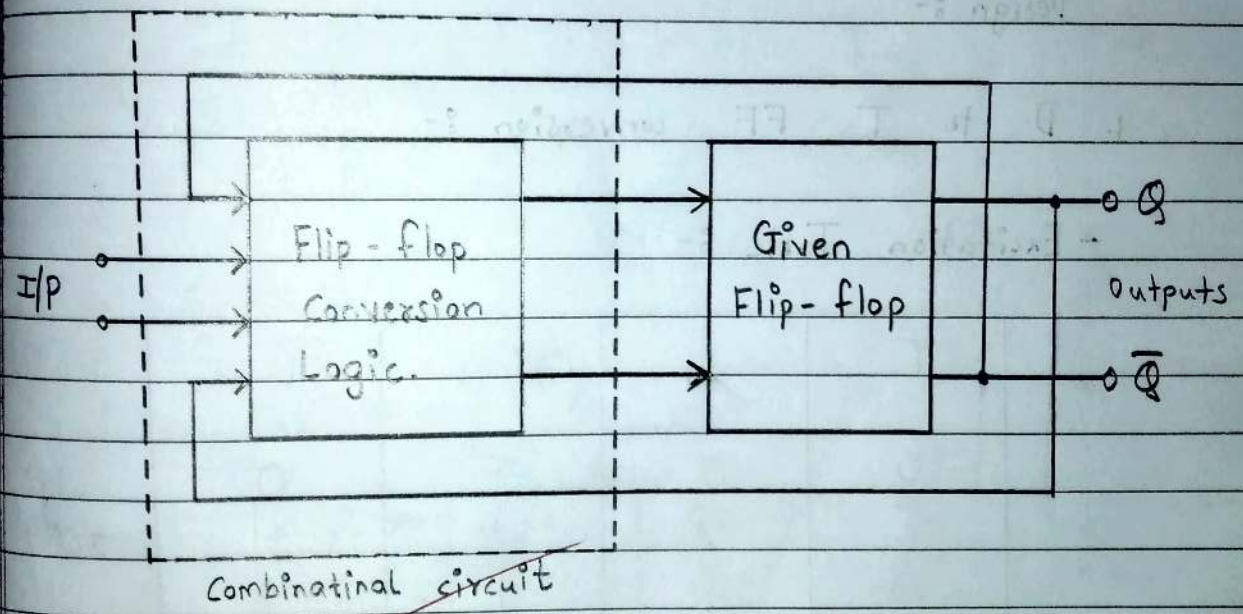 I/P
Flip-flop
Conversion
Logic.
Given
Flip-flop
Q
Outputs
Q̅
Combinatinal circuit